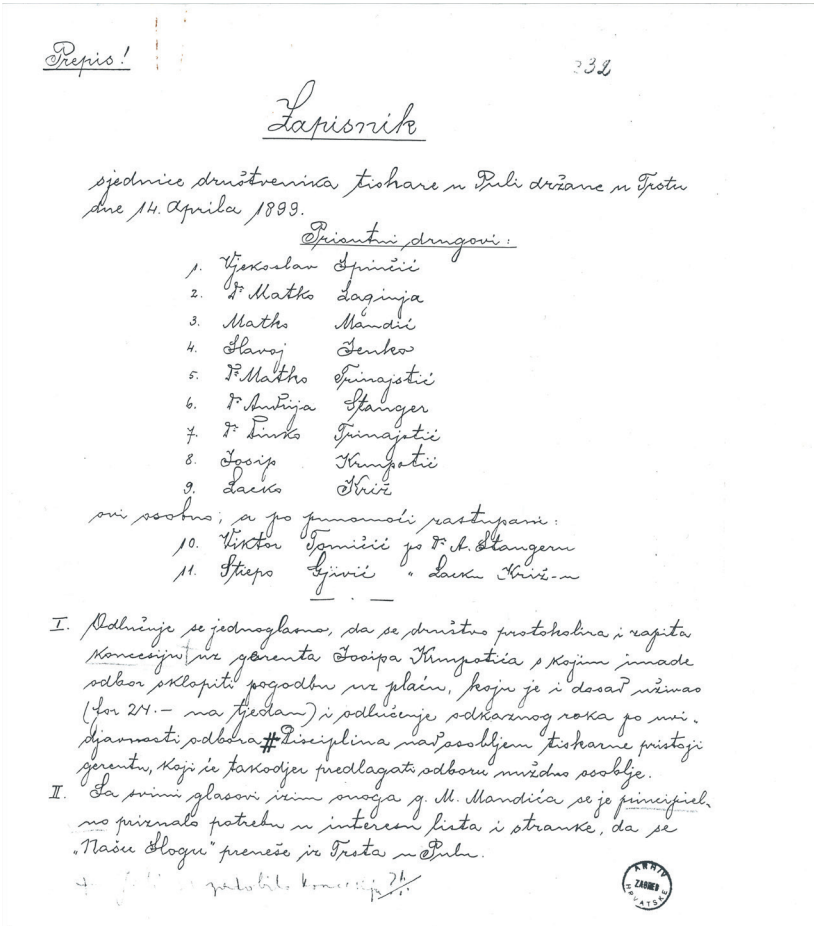 Prepis!
232
Zapisnik
sjednice društvenika tiskare u Puli držane u Trstu
dne 14. Aprila 1899.
Prisutni drugovi:
1. Vjekoslav Spinčić
2. Dr Matko Laginja
3. Matko Mandić
4. Slavoj Jenko
5. Dr Matko Trinajstić
6. Dr Andrija Stanger
7. Dr Dinko Trinajstić
8. Josip Krmpotić
9. Lacko Križ
ovi osobno; a po punomoći zastupani:
10. Viktor Tomičić po Dr A. Stangeru
11. Stiepo Gjivić " Lacku Križ-u
I. Odlučuje se jednoglasno, da se društvo protokolira i zapita
koncesiju uz gerenta Josipa Krmpotića s kojim imade
odbor sklopiti pogodbu uz plaću, koju je i dosad uživao
(for 24.- na tjedan) i odlučenje odkaznog roka po uvi-
djavnosti odbora # Disciplina nad osobljem tiskarne pristoji
gerentu, koji će takodjer predlagati odboru nuždno osoblje.
II. Sa svimi glasovi izim onoga g. M. Mandića se je principiel-
no priznalo potrebu u interesu lista i stranke, da se
„Našu Slogu" prenese iz Trsta u Pulu.
zadobila koncesiju
ARHIV
ZAGREB
HRVATSKE